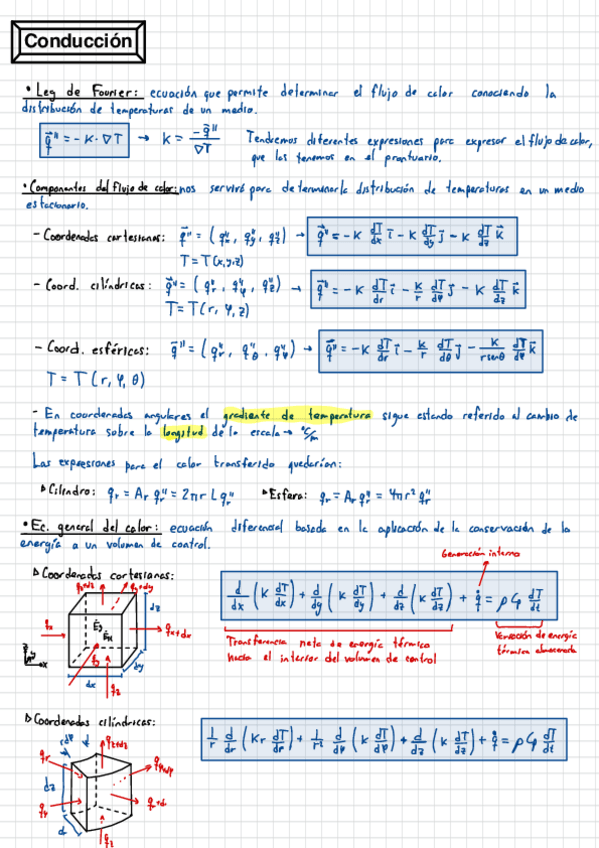 Conducción
• Ley de Fourier: ecuación que permite determinar el flujo de calor conociendo la
distribución de temperaturas de un medio.
q⃗'' = -K · ∇T → K = -q⃗''/∇T Tendremos diferentes expresiones para expresar el flujo de calor,
que las tenemos en el prontuario.
• Componentes del flujo de calor: nos servirá para determinar la distribución de temperaturas en un medio
estacionario.
- Coordenadas cartesianas: q⃗'' = (q''x, q''y, q''z) → q⃗'' = -K dT/dx i⃗ - K dT/dy j⃗ - K dT/dz k⃗
T = T(x,y,z)
- Coord. cilíndricas: q⃗'' = (q''r, q''φ, q''z) → q⃗'' = -K dT/dr i⃗ - K/r dT/dφ j⃗ - K dT/dz k⃗
T = T(r, φ, z)
- Coord. esféricas: q⃗'' = (q''r, q''θ, q''φ) → q⃗'' = -K dT/dr i⃗ - K/r dT/dθ j⃗ - K/(r senθ) dT/dφ k⃗
T = T(r, φ, θ)
- En coordenadas angulares el gradiente de temperatura sigue estando referido al cambio de
temperatura sobre la longitud de la escala → ºC/m
Las expresiones para el calor transferido quedarían:
▷ Cilindro: qr = Ar q''r = 2πrL q''r ▷ Esfera: qr = Ar q''r = 4πr² q''r
• Ec. general del calor: ecuación diferencial basada en la aplicación de la conservación de la
energía a un volumen de control.
Generación interna
▷ Coordenadas cartesianas:
d/dx (K dT/dx) + d/dy (K dT/dy) + d/dz (K dT/dz) + q̇ = ρ Cp dT/dt
qz+dz
qy+dy
dz
qx
Ėg
Ėst
qx+dx
qy
z
y
x
dx
dy
qz
Transferencia neta de energía térmica
hacia el interior del volumen de control
Variación de energía
térmica almacenada
▷ Coordenadas cilíndricas:
1/r d/dr (Kr dT/dr) + 1/r² d/dφ (K dT/dφ) + d/dz (K dT/dz) + q̇ = ρ Cp dT/dt
rdφ
qz+dz
qr
qφ+dφ
dz
qφ
qz